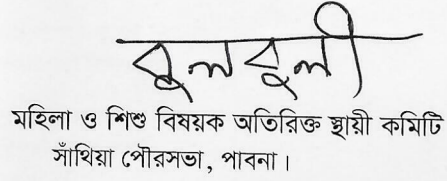 বুলবুলী
মহিলা ও শিশু বিষয়ক অতিরিক্ত স্থায়ী কমিটি
সাঁথিয়া পৌরসভা, পাবনা।